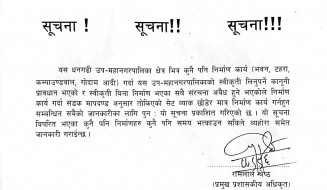 सूचना ! सूचना!! सूचना!!!
यस धनगढी उप-महानगरपालिका क्षेत्र भित्र कुनै पनि निर्माण कार्य (भवन, टहरा,
कम्पाउण्डवाल, गोदाम आदी) गर्दा यस उप-महानगरपालिकाको स्वीकृती लिनुपर्ने कानूनी
प्रावधान भएको र स्वीकृती बिना निर्माण भएका सबै संरचना अबैध हुने भएकोले निर्माण
कार्य गर्दा सडक मापदण्ड अनुसार तोकिएको सेट व्याक छोडेर मात्र निर्माण कार्य गर्नहुन
सम्बन्धित सबैको जानकारीका लागि पुनः यो सूचना प्रकाशित गरिएको छ । यो सूचना
विपरित भएका कुनै पनि निर्माणहरु कुनै पनि समय भत्काउन सकिने व्यहोरा समेत
जानकारी गराईन्छ ।
रामलाल श्रेष्ठ
(प्रमुख प्रशासकीय अधिकृत)